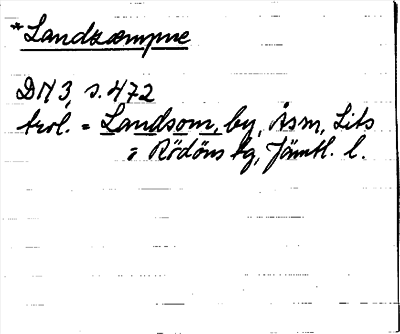 *Landzæmpne
DN 3, s. 472
trol. = Landsom, by, Åsm, Lits
= Rödöns tg, Jämtl. l.